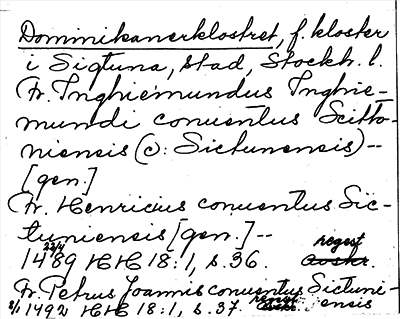 Dominikanerklostret, f. kloster
i Sigtuna, stad, Stockh. l.
Fr. Inghiemundus Inghie-
mundi conuentus Scitto-
niensis (ɔ: Sictunensis)--
[gen.]
Fr. Henricius conuentus Sic-
tuniensis [gen.]--
22/4 regest
1489 HH 18:1, s. 36. Avskr.
Fr. Petrus Joannis conuentus Sictuni-
regest ensis
8/1 1492 HH 18:1, s. 37. Avskr.